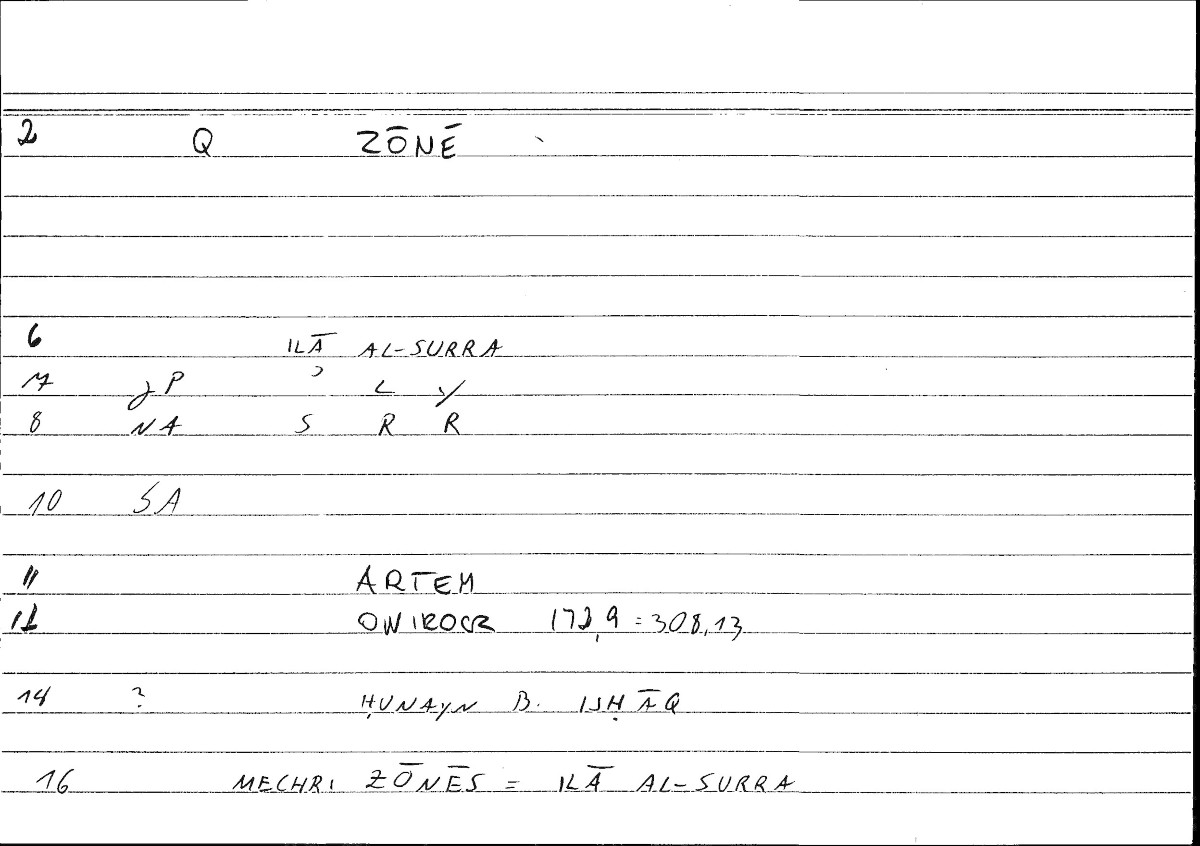 2 Q ZŌNĒ
6 ILĀ AL-SURRA
7 JP ʾ L Y
8 NA S R R
10 SA
11 ARTEM
12 ONIROCR 172,9 = 308,13
14 ? ḤUNAYN B. ISḤĀQ
16 MECHRI ZŌNĒS = ILĀ AL-SURRA